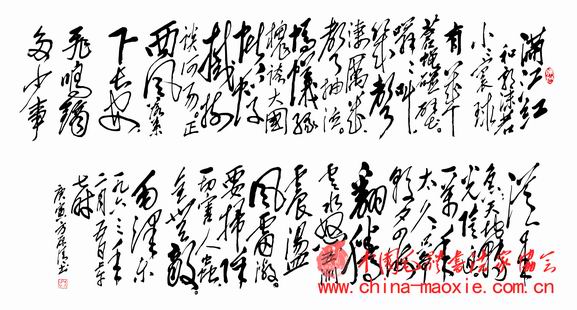 满江红
和郭沫若
小小寰球
有几个
苍蝇碰壁
嗡嗡叫
几声
凄厉几
声抽泣
蚂蚁缘
槐夸大国
蚍蜉
撼树
谈何易正
西风落叶
下长安
飞鸣镝
多少事
从来
急天地转
光阴迫
一万年
太久只争
朝夕四海
翻腾
云水怒五洲
震荡
风雷激
要扫除
一切害人虫
全无敌
毛泽东
一九六三年
庚寅
中国毛体书法家协会
www.china-maoxie.com.cn